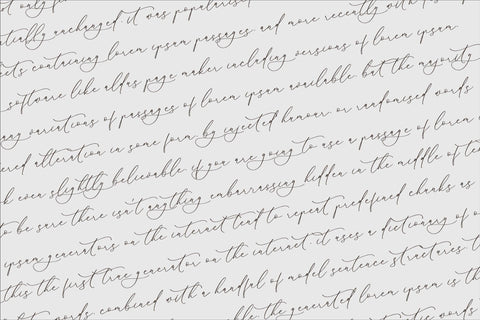 not only fi
ntially unchanged. it was popularised
eets containing lorem ipsum passages, and more recently with
software like aldus page maker including versions of lorem ipsum.
any variations of passages of lorem ipsum available, but the majority
ered alteration in some form, by injected humour, or randomised words
k even slightly believable. if you are going to use a passage of lorem
to be sure there isn't anything embarrassing hidden in the middle of tex
ipsum generators on the internet tend to repeat predefined chunks as
this the first true generator on the internet. it uses a dictionary of o
words, combined with a handful of model sentence structures, t
the generated lorem ipsum is th
words